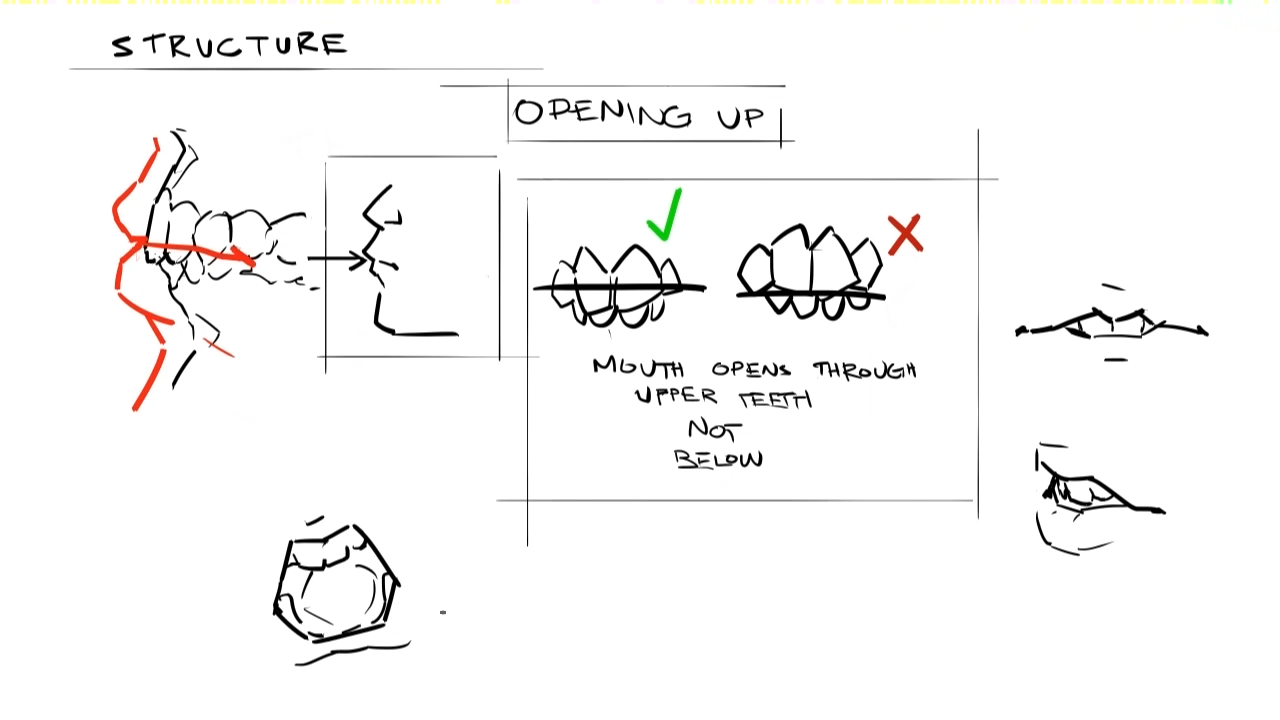 STRUCTURE
OPENING UP
MOUTH OPENS THROUGH
UPPER TEETH
NOT
BELOW